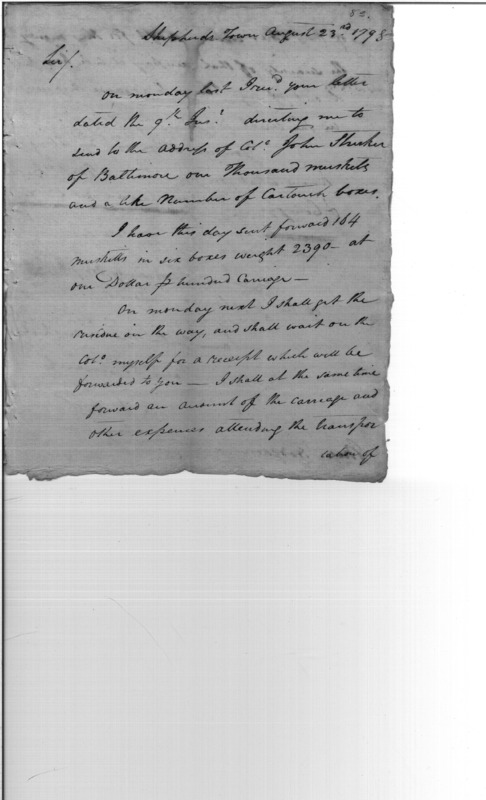 Shepherds Town August 23rd 1798
Sir/.
On monday last I recd. your letter
dated the 9th Inst. directing me to
send to the address of Colo. John Stricker
of Baltimore one Thousand muskets
and a like Number of Cartouch boxes.
I have this day sent forward 164
muskets in six boxes weight 2390 - at
one Dollar hundred Carriage -
On monday next I shall get the
residue on the way, and shall wait on the
Colo. myself for a receipt which will be
forwarded to you - I shall at the same time
forward an amount of the carriage and
other expences attending the transpor
tation of